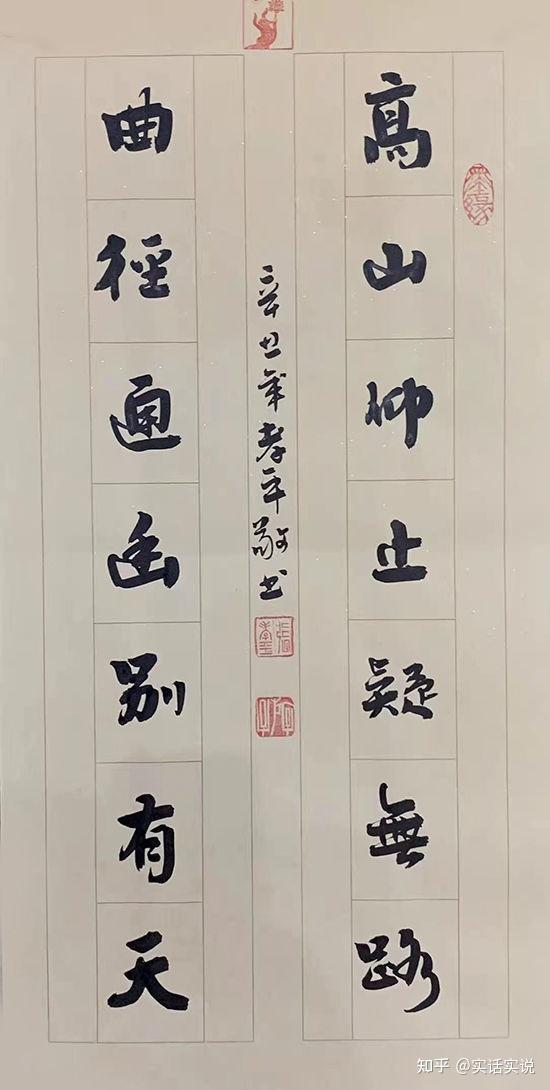 高山仰止疑無路
曲徑通幽別有天
辛丑年孝平敬书
知乎 @实话实说